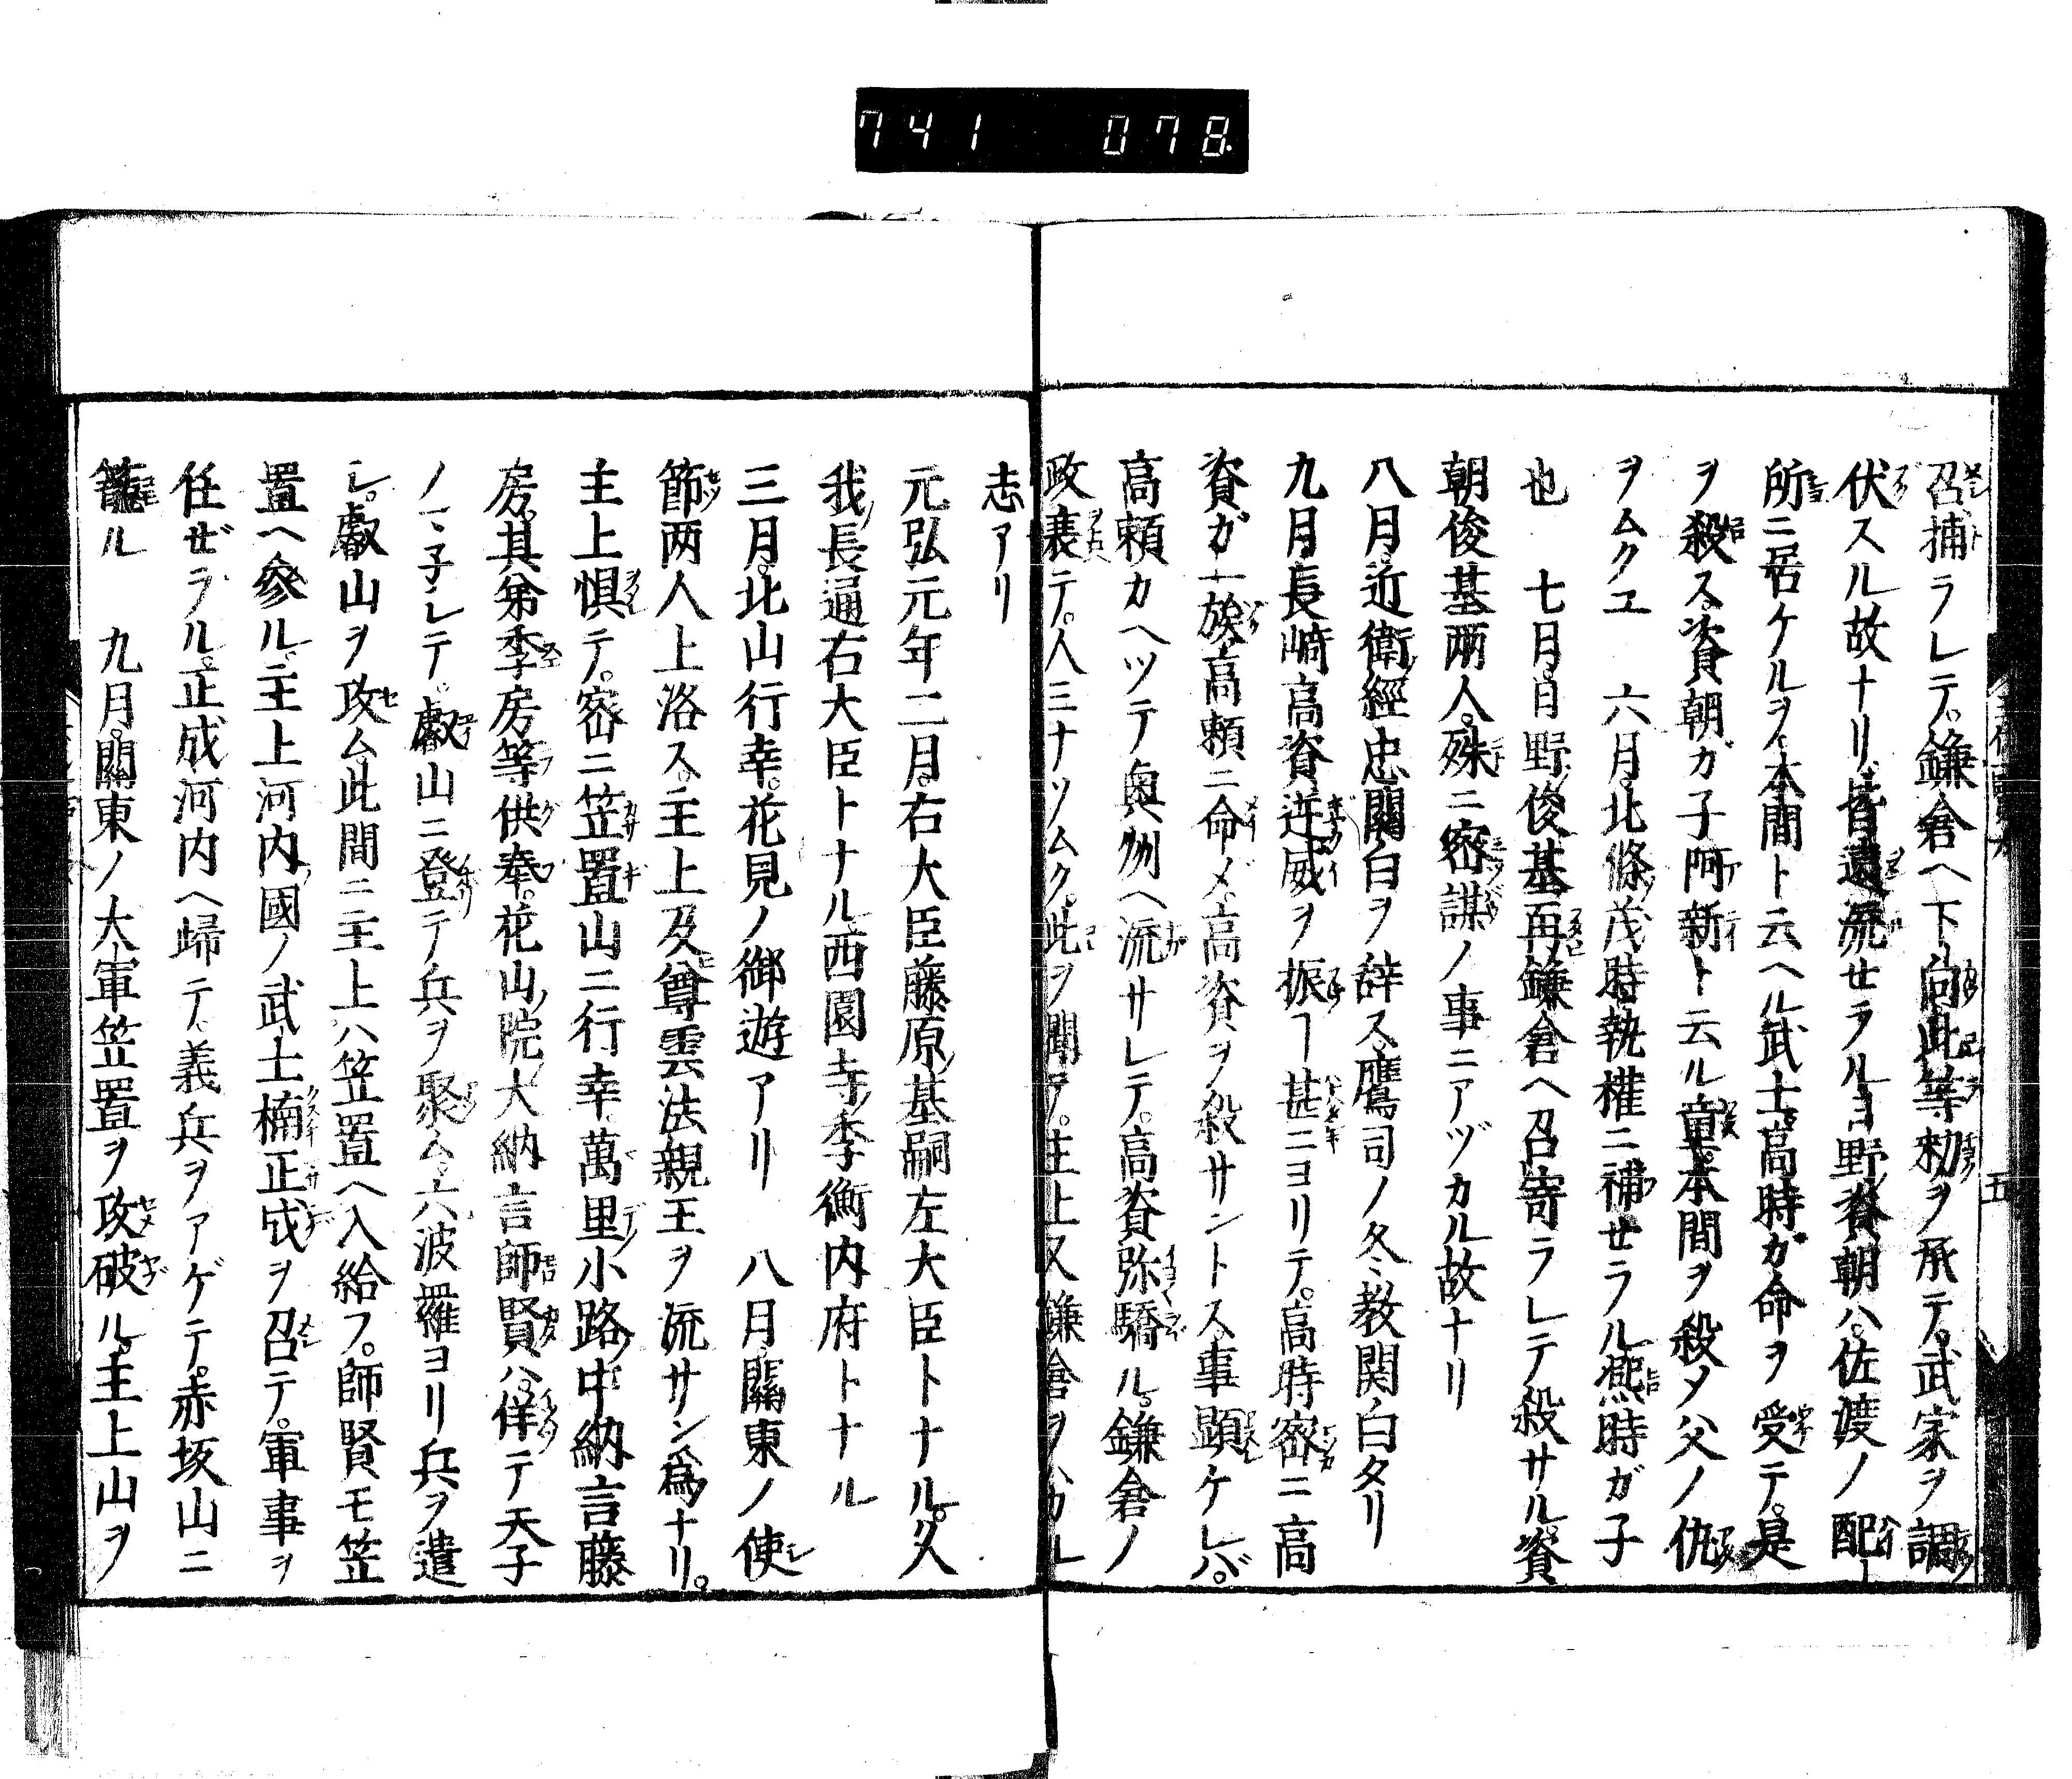 741 078
召捕ラレテ。鎌倉ヘ下向。此等勅ヲ承テ。武家ヲ調
伏スル故ナリ。皆遠流セラル。日野資朝ハ。佐渡ノ配
所ニ居ケルヲ。本間ト云ヘル武士。高時ガ命ヲ受テ。是
ヲ殺ス。資朝ガ子阿新ト云ル童。本間ヲ殺メ父ノ仇
ヲムクユ 六月。北條茂時執權ニ補セラル。熈時ガ子
也 七月。日野俊基再鎌倉ヘ召寄ラレテ殺サル。資
朝俊基兩人。殊ニ密謀ノ事ニアヅカル故ナリ
八月。近衛經忠關白ヲ辞ス。鷹司ノ冬教関白タリ
九月。長崎高資逆威ヲ振フヿ甚ニヨリテ。高時密ニ高
資ガ一族。高頼ニ命〆。高資ヲ殺サントス。事顕ケレバ。
高頼カヘツテ奥州ヘ流サレテ。高資弥驕ル。鎌倉ノ
政衰テ。人ミナソムク。此ヲ聞テ。主上又鎌倉ヲハカル
志アリ
元弘元年二月。右大臣藤原基嗣左大臣トナル。久
我長通右大臣トナル。西園寺季衡内府トナル
三月。北山行幸。花見ノ御遊アリ 八月。關東ノ使
節两人上洛ス。主上及尊雲法親王ヲ流サン爲ナリ。
主上惧テ。密ニ笠置山ニ行幸。萬里小路中納言藤
房。其弟季房等供奉。花山院大納言師賢ハ。佯テ天子
ノマ子シテ。叡山ニ登テ兵ヲ聚ム。六波羅ヨリ兵ヲ遣
シ。叡山ヲ攻ム。此間ニ主上ハ笠置ヘ入給フ。師賢モ笠
置ヘ參ル。主上河内國ノ武士楠正成ヲ召テ。軍事ヲ
任ぜラル。正成河内ヘ歸テ。義兵ヲアゲテ。赤坂山ニ
籠ル 九月。關東ノ大軍笠置ヲ攻破ル。主上山ヲ
五